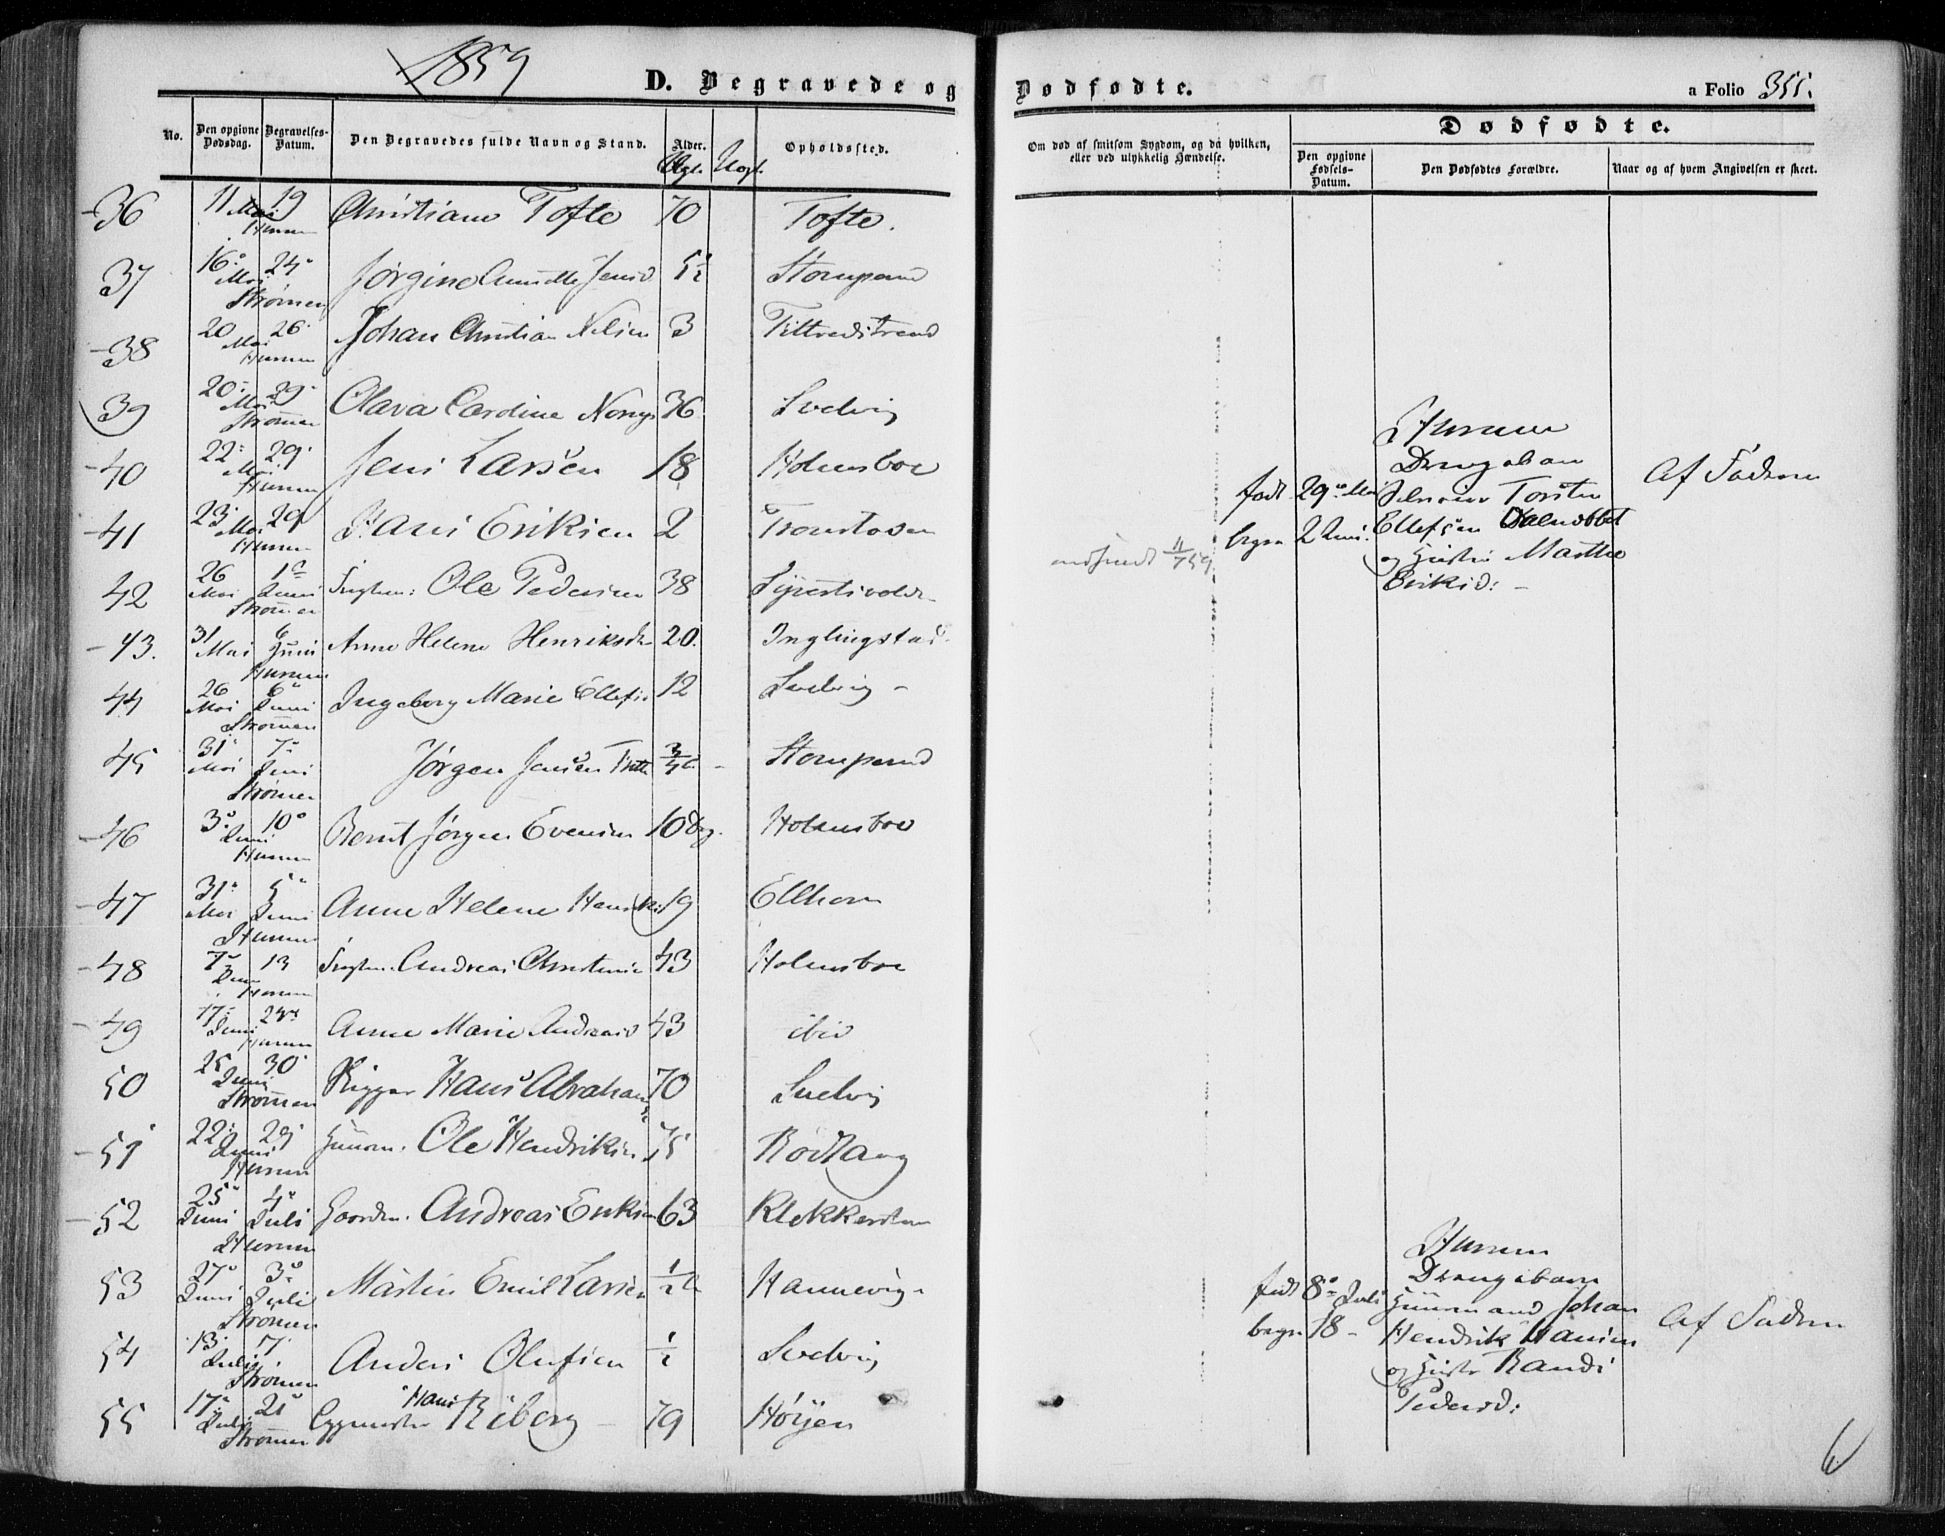 1859
D. Begravede og Dødfødte.
a Folio 355.
No.
Den opgivne Dødsdag.
Begravelses-Datum.
Den Begravedes fulde Navn og Stand.
Alder.
Opholdssted.
Om død af smitsom Sygdom, og da hvilken, eller ved ulykkelig Hændelse.
Dødfødte.
Den opgivne Fødsels-Datum.
Den Dødfødtes Forældre.
Naar og af hvem Angivelsen er skeet.
36 11 Mai 19 Hurum Christiane Tofte 70 Tofte.
37 16 Mai 24 Strømmen Jørgine Jensd
38 20 Mai 26 Hurum Johan Christian Nilsen 3
39 20 Mai 29 Strømmen Olava Cardine 36 Svelvig
40 22 Mai 29 Hurum Jens Larsen 18 Holmsboe
41 23 Mai 29 Hurum Hans Eriksen 2
42 26 Mai 1 Juni Strømmen Ole Pedersen 38
43. 31 Mai 6 Juni Hurum Anne Helene Henriksdr 20. Inglingstad
44 26 Mai 6 Juni Strømmen Ingeborg Marie Ellefsd 12 Svelvig
45 31 Mai 7 Juni Strømmen Jørgen Jensen 3/4
46 3 Juni 10 Hurum Bernt Jørgen Evensen 10 Dg. Holmsboe
47 31 Mai 5 Juni Hurum Anne Helene 19 Ellhorn
48 7 Juni 13 Hurum Andreas Christensen 43 Holmsboe
49 17 Juni 24 Hurum Anne Marie Andreasd 43 ibid
50 25 Juni 30 Strømmen Skipper Hans Abrahams 70 Svelvig
51 22 Juni 29 Hurum Huusm. Ole Hendriksen 75 Rødtang
52 25 Juni 4 Juli Hurum Gaardm. Andreas Eriksen 63
53 27 Juni 3 Juli Strømmen Martin Emil Larsen 1/2 Hannevig
54 13 Juli 17 Strømmen Anders Olufsen 1/2 Svelvig
55 17 Juli 21 Strømmen Hans Riberg 79 Høyen
Hurum
Drengebarn
født 29 Mai Torsten
begr 2 Juni. Ellefsen
og Hustru Marthe
Eriksd:
Af Faderen
Hurum
Drengebarn
født 8 Juli Huusmand Johan
begr 18 Hendrik Hansen
og Hustr Randi
Pedersd:
Af Faderen